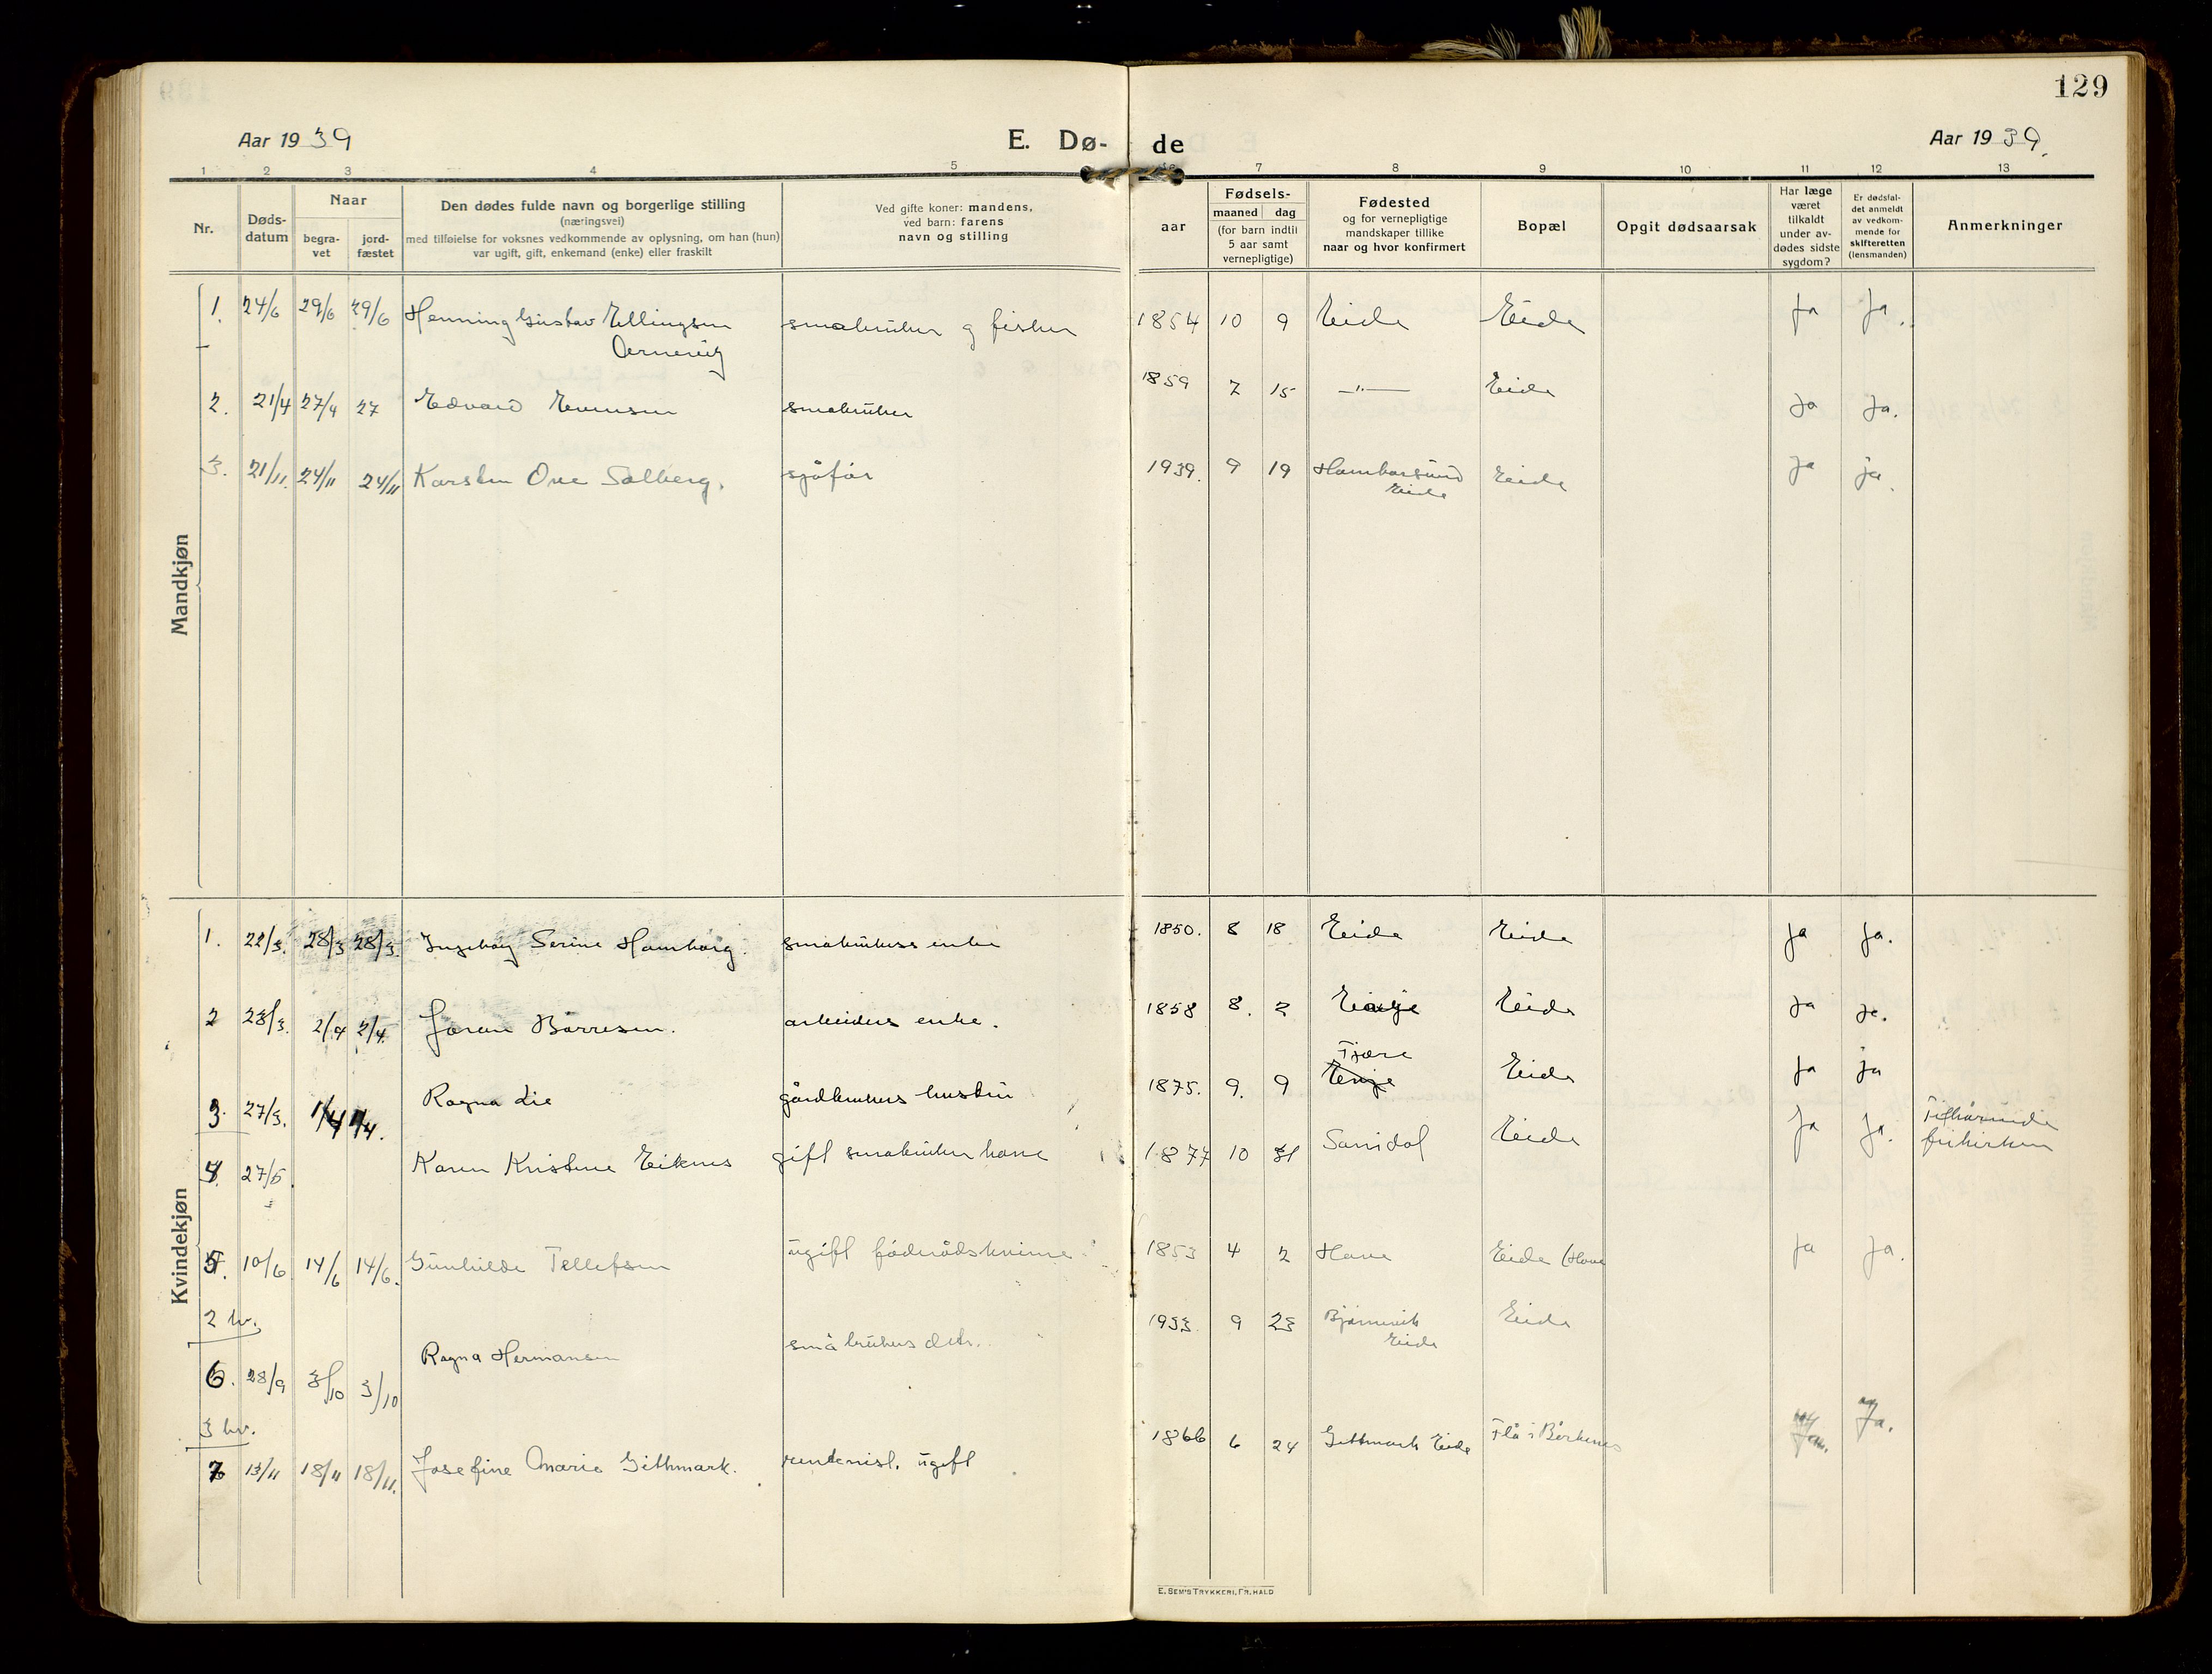 129
Aar 1939
E. Dø-
de
Aar 1939.
1 2 3 4 5 7 8 9 10 11 12 13
Nr.
Døds-
datum
Naar
begra-
vet
jord-
fæstet
Den dødes fulde navn og borgerlige stilling
(næringsvei)
med tilføielse for voksnes vedkommende av oplysning, om han (hun)
var ugift, gift, enkemand (enke) eller fraskilt
Ved gifte koner: mandens,
ved barn: farens
navn og stilling
aar
Fødsels-
maaned dag
(for barn indtil
5 aar samt
vernepligtige)
Fødested
og for vernepligtige
mandskaper tillike
naar og hvor konfirmert
Bopæl
Opgit dødsaarsak
Har læge
været
tilkaldt
under av-
dødes sidste
sygdom?
Er dødsfal-
det anmeldt
av vedkom-
mende for
skifteretten
(lensmanden)
Anmerkninger
Mandkjøn
1. 24/6 29/6 29/6 Henning Gustav Ellingsen småbruker og fisker 1854 10 9 Eide Eide Ja Ja.
2. 21/4 27/4 27 Edvard Evensen småbruker 1859 7 15 —"— Eide Ja Ja.
3. 21/11. 24/11 24/11 Karsten Ove Salberg. sjåfør 1939. 9 19 Hamborsund Eide Ja ja.
Eide
Kvindekjøn
1. 22/3. 28/3 28/3. Ingeborg Serine Hamborg. småbrukers enke 1850. 8 18 Eide Eide Ja Ja.
2 28/3. 2/4 2/4. Joran Børresen. arbeiders enke. 1858 8. 2 Eide Ja Ja.
Tjære
3. 27/3. 1/4 1/4. Ragna Lie gårdbrukers hustru 1875. 9. 9 Eide Ja ja
4. 27/5. Karen Kristine Eiknes gift småbruker kone 1877 10 31 Sannidal Eide Ja Ja. Tilhørende
frikirken
5. 10/6 14/6 14/6. Gunhilde Tellefsen ugift føderådskvinne. 1853 4 2 Have Eide (Have Ja Ja.
2 kv.
6. 28/9 3/10 3/10 Ragna Hermansen småbrukers dtr. 1933. 9 23 Bjørnevik Eide
Eide
3 kv.
7 13/11 18/11 18/11. Josefine Marie Gitmark. rentenist. ugift 1866 6 24 Gitmark Eide Flå i Birkenes Ja.
E. SEM'S TRYKKERI, FR. HALD